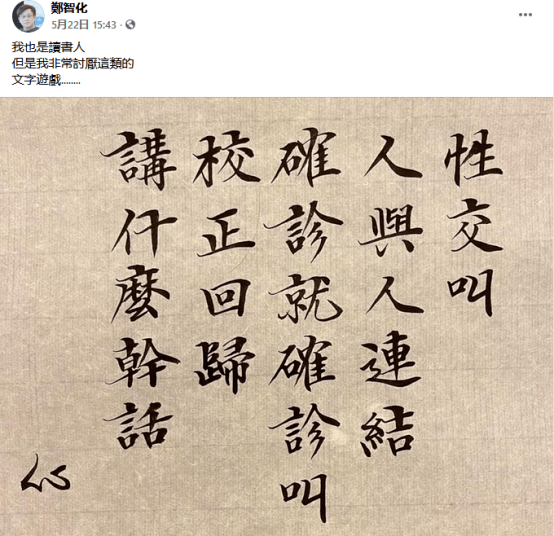 鄭智化
5月22日 15:43
我也是讀書人
但是我非常討厭這類的
文字遊戲........
性交叫
人與人連結
確診就確診叫
校正回歸
講什麼幹話